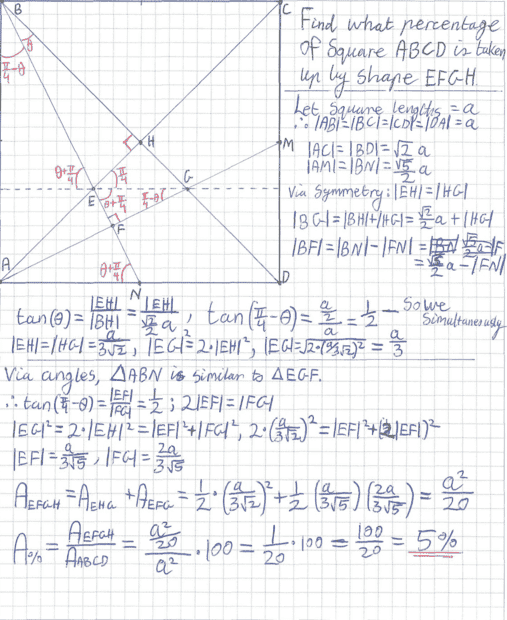 B
C
Find what percentage
Of Square ABCD is taken
up by shape EFGH.
θ
π/4-θ
Let Square lengths = a
∴ |AB|=|BC|=|CD|=|DA|=a
H
M
|AC|=|BD|=√2 a
|AM|=|BN|=√5/2 a
θ+π/4
π/4
Via Symmetry: |EH|=|HG|
E
θ+π/4
π/4-θ
G
|BG|=|BH|+|HG|=√2/2 a+|HG|
F
|BF|=|BN|-|FN|=|BN| √5/2 a-|F
=√5/2 a-|FN|
θ+π/4
A
N
D
tan(θ)=|EH|/|BH|=|EH|/(√2/2 a), tan(π/4-θ)=(a/2)/a=1/2 - Solve Simultaneously
|EH|=|HG|=a/3√2, |EG|²=2·|EH|², |EG|=√2·(a/3√2)²=a/3
Via angles, △ABN is similar to △EGF.
∴ tan(π/4-θ)=|EF|/|FG|=1/2; 2|EF|=|FG|
|EG|²=2·|EH|²=|EF|²+|FG|², 2·(a/3√2)²=|EF|²+(2|EF|)²
|EF|=a/3√5, |FG|=2a/3√5
A_EFGH=A_EHG+A_EFG=1/2·(a/3√2)²+1/2(a/3√5)(2a/3√5)=a²/20
A%=A_EFGH/A_ABCD=(a²/20)/a²·100=1/20·100=100/20=5%